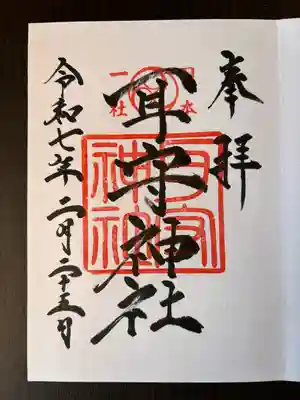 奉拝
耳守神社
令和七年二月二十五日
一社
神社